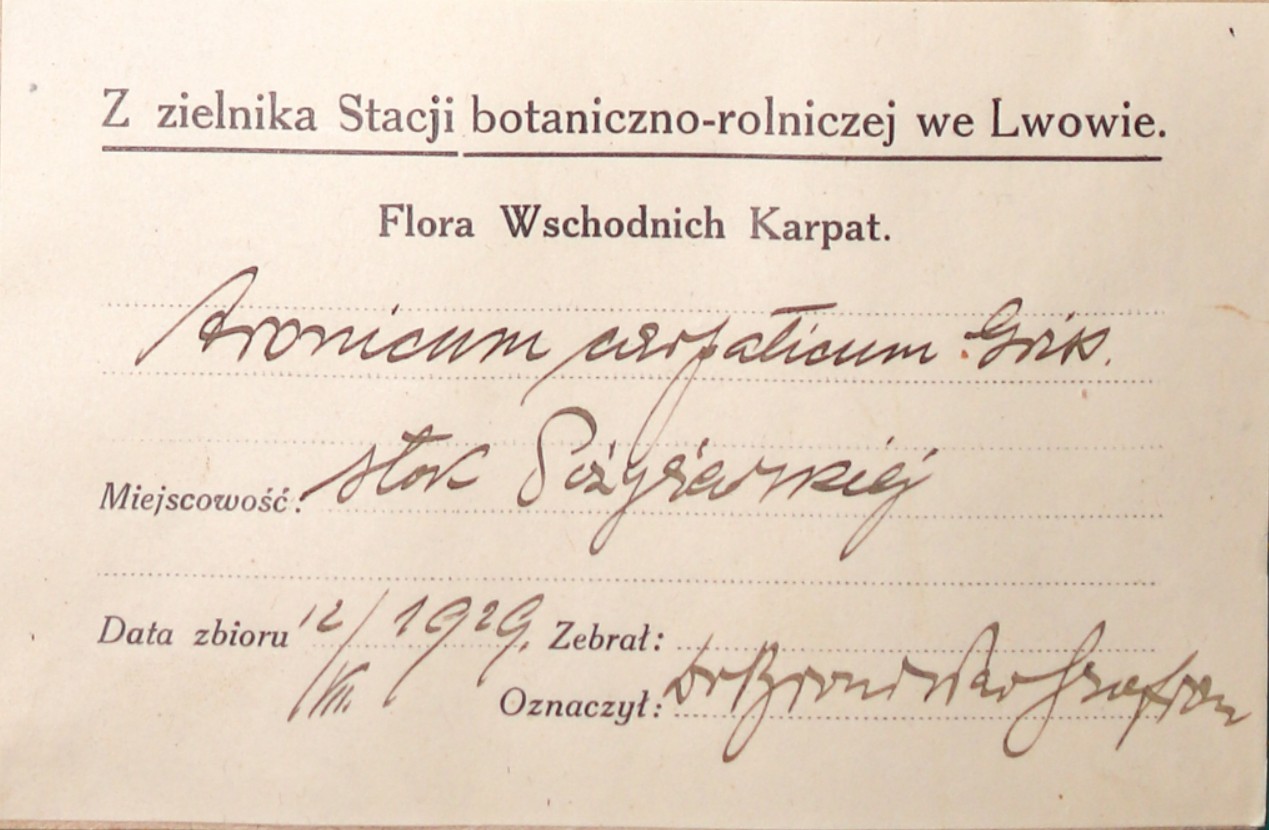 Z zielnika Stacji botaniczno-rolniczej we Lwowie.
Flora Wschodnich Karpat.
Aronicum carpaticum Gris.
Miejscowość: stok Pożyżewskiej
Data zbioru 12/VIII. 1929. Zebrał:
Oznaczył: Dr Bronisław Szafran